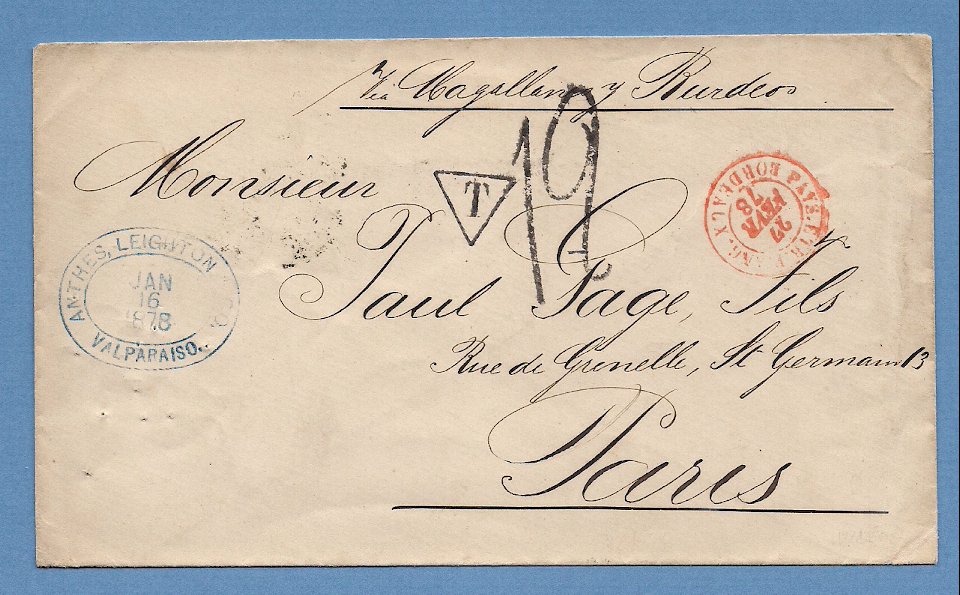 Via Magallanes y Burdeos
Monsieur
T
12
PAYS. ETRANG. X BORDEAUX
27
FEVR
78
ANTHES, LEIGHTON & CO.
JAN
16
1878
VALPARAISO.
Paul Sage, Fils
Rue de Grenelle, St Germain 13
Paris